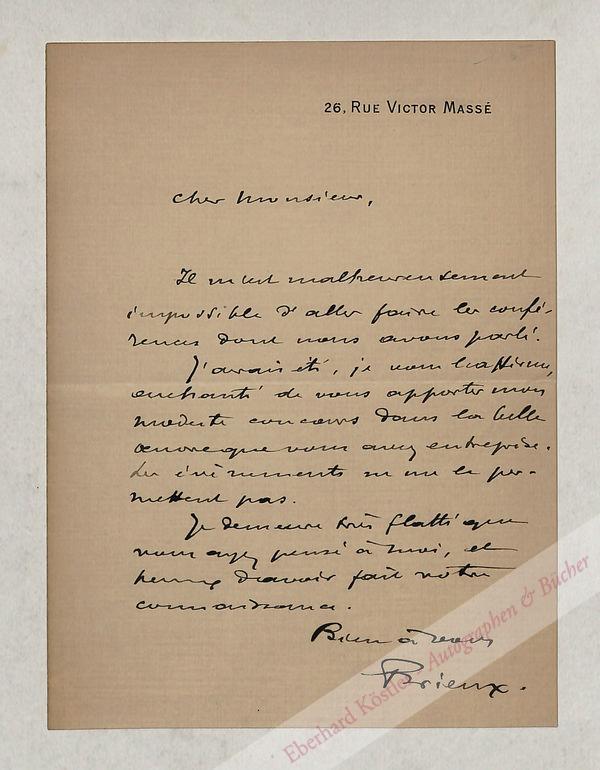 26, RUE VICTOR MASSÉ
Cher Monsieur,
Il m'est malheureusement
impossible d'aller faire les confé-
rences dont nous avons parlé.
J'aurais été, je vous l'affirme,
enchanté de vous apporter mon
modeste concours dans la belle
œuvre que vous avez entreprise.
Les évènements ne me le per-
mettent pas.
Je demeure très flatté que
vous ayez pensé à moi, et
heureux d'avoir fait votre
connaissance.
Bien à vous
Brieux.
Eberhard Köstler Autographen & Bücher